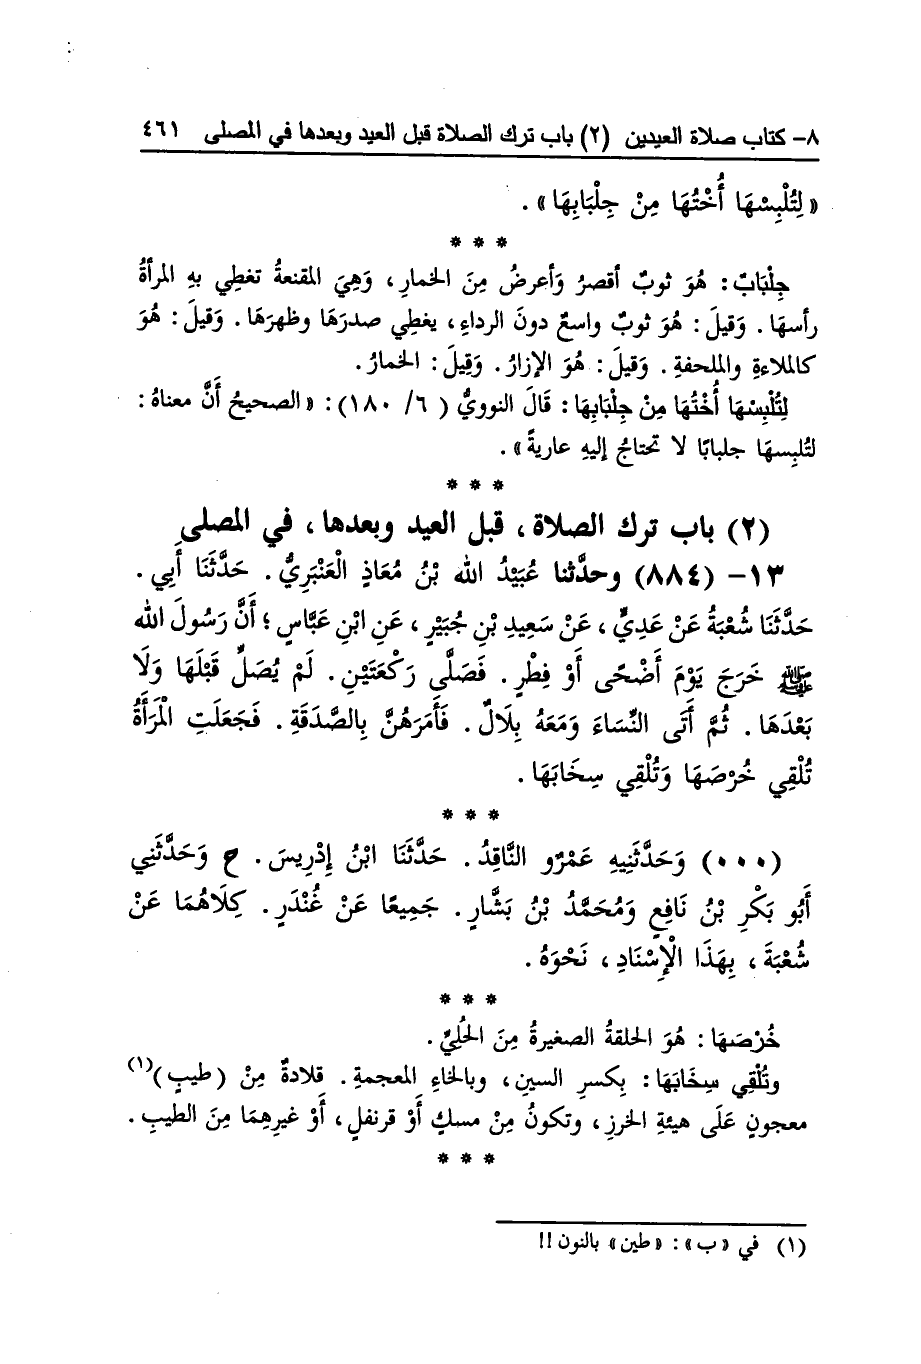 ٨- كتاب صلاة العيدين (٢) باب ترك الصلاة قبل العيد وبعدها في المصلى ٤٦١
«لِتُلْبِسْهَا أُخْتُهَا مِنْ جِلْبَابِهَا» .
* * *
جِلْبَابٌ : هُوَ ثوبٌ أقصرُ وَأعرضُ مِنَ الخمارِ ، وَهِيَ المقنعةُ تغطِي بهِ المرأةُ
رأسهَا . وَقيلَ : هُوَ ثوبٌ واسعٌ دونَ الرداءِ ، يغطِي صدرَهَا وظهرَهَا . وَقيلَ : هُوَ
كالملاءةِ والملحفةِ . وَقيلَ : هُوَ الإزارُ . وَقِيلَ : الخمارُ .
لِتُلْبِسْهَا أُخْتُهَا مِنْ جِلْبَابِهَا : قَالَ النوويُّ ( ٦/ ١٨٠) : «الصحيحُ أَنَّ معناهُ :
لتُلبِسهَا جلبابًا لا تحتاجُ إليهِ عاريةً» .
* * *
(٢) باب ترك الصلاة ، قبل العيد وبعدها ، في المصلى
١٣- (٨٨٤) وحدَّثنا عُبَيْدُ الله بْنُ مُعَاذٍ الْعَنْبَرِيُّ . حَدَّثَنَا أَبِي .
حَدَّثَنَا شُعْبَةُ عَنْ عَدِيٍّ ، عَنْ سَعِيدِ بْنِ جُبَيْرٍ ، عَنِ ابْنِ عَبَّاسٍ ؛ أَنَّ رَسُولَ الله
ﷺ خَرَجَ يَوْمَ أَضْحًى أَوْ فِطْرٍ . فَصَلَّى رَكْعَتَيْنِ . لَمْ يُصَلِّ قَبْلَهَا وَلَا
بَعْدَهَا . ثُمَّ أَتَى النِّسَاءَ وَمَعَهُ بِلَالٌ . فَأَمَرَهُنَّ بِالصَّدَقَةِ . فَجَعَلَتِ الْمَرْأَةُ
تُلْقِي خُرْصَهَا وَتُلْقِي سِخَابَهَا .
* * *
(٠٠٠) وَحَدَّثَنِيهِ عَمْرٌو النَّاقِدُ . حَدَّثَنَا ابْنُ إِدْرِيسَ . ح وَحَدَّثَنِي
أَبُو بَكْرِ بْنُ نَافِعٍ وَمُحَمَّدُ بْنُ بَشَّارٍ . جَمِيعًا عَنْ غُنْدَرٍ . كِلَاهُمَا عَنْ
شُعْبَةَ ، بِهَذَا الْإِسْنَادِ ، نَحْوَهُ .
* * *
خُرْصَهَا : هُوَ الحلقةُ الصغيرةُ مِنَ الحُليِّ .
وتُلْقِي سِخَابَهَا : بِكسرِ السينِ ، وبالخاءِ المعجمةِ . قلادةٌ مِنْ (طيبٍ)(١)
معجونٍ عَلَى هيئةِ الخرزِ ، وتكونُ مِنْ مسكٍ أَوْ قرنفلٍ ، أَوْ غيرِهمَا مِنَ الطيبِ .
* * *
(١) في «ب» : «طين» بالنون !!